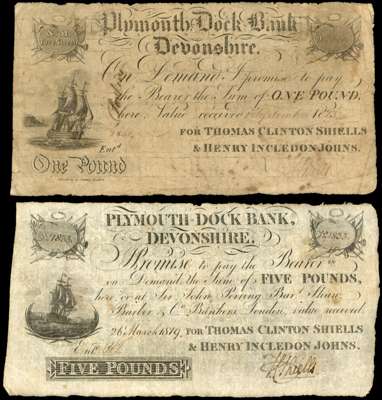 Plymouth Dock Bank
Devonshire.
On Demand I promise to pay
the Bearer the Sum of ONE POUND,
here Value received
FOR THOMAS CLINTON SHIELLS
Ent.d
& HENRY INCLEDON JOHNS.
One Pound
PLYMOUTH-DOCK BANK,
DEVONSHIRE.
I Promise to pay the Bearer
on Demand the Sum of FIVE POUNDS,
here or at Sir John Perring Bar.t Shaw
Barber & Co. Bankers London, value received
26 March 1819. FOR THOMAS CLINTON SHIELLS
Ent.d
& HENRY INCLEDON JOHNS.
FIVE POUNDS
Shiells